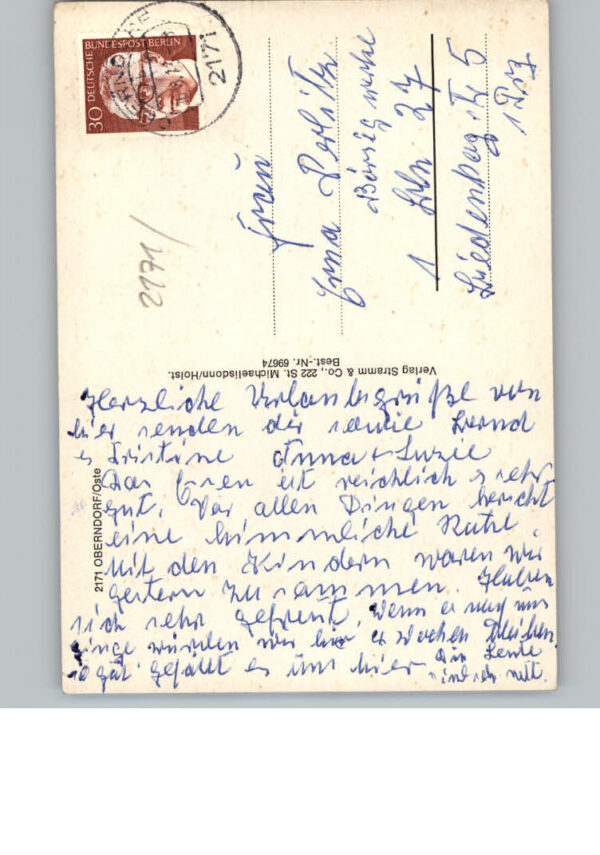 30 DEUTSCHE BUNDESPOST BERLIN
2171
Frau
Erna
Borsigwalde
1 Bln 27
5
1722
Verlag Stramm & Co., 222 St. Michaelisdonn/Holst.
Best.-Nr. 69674
2171 OBERNDORF/Oste
Herzliche Urlaubsgrüße von
hier senden dir sowie Bernd
Anna + Susie
Das Essen ist reichlich & sehr
gut. Vor allen Dingen herscht
eine himmliche Ruhe.
Mit den Kindern waren wir
gestern zusammen. Haben
sich sehr gefreut. Wenn es nach uns
ginge würden wir hier Wochen bleiben
so gut gefällt es uns hier. Die Leute
sind nett.